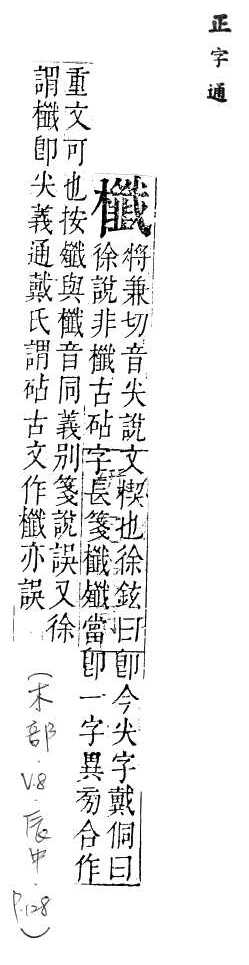 正字通
櫼
將兼切音尖說文楔也徐鉉曰卽今尖字戴侗曰
徐說非櫼古砧字長箋櫼殲當卽一字異旁合作
重文可也按殲與櫼音同義別箋說誤又徐
謂櫼卽尖義通戴氏謂砧古文作櫼亦誤
(木部．V.8．辰中．P.128)